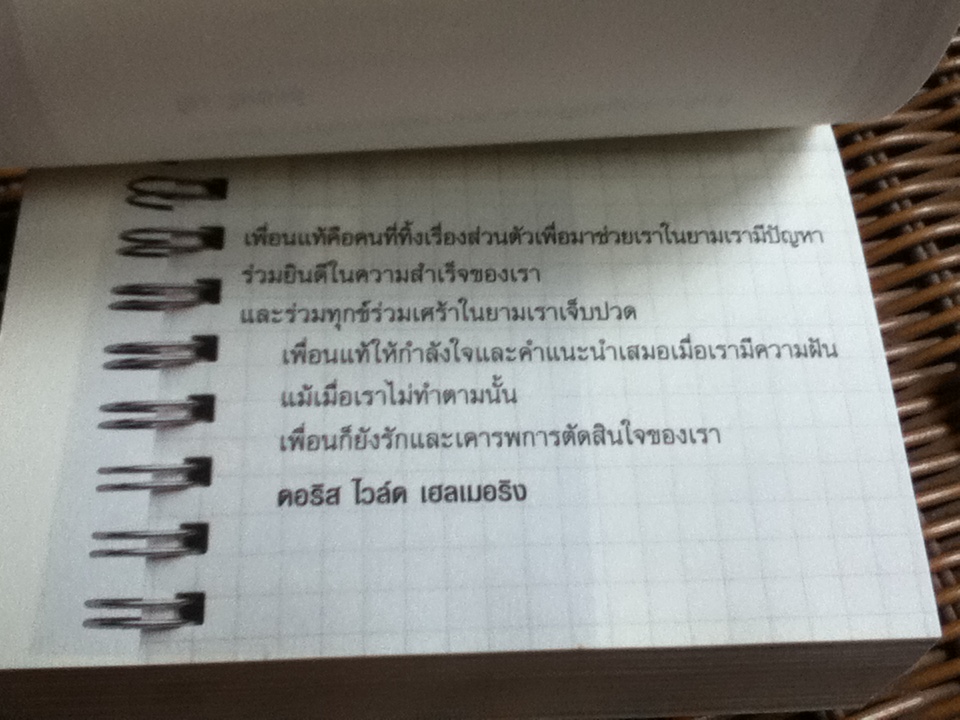 เพื่อนแท้คือคนที่ทิ้งเรื่องส่วนตัวเพื่อมาช่วยเราในยามเรามีปัญหา
ร่วมยินดีในความสำเร็จของเรา
และร่วมทุกข์ร่วมเศร้าในยามเราเจ็บปวด
เพื่อนแท้ให้กำลังใจและคำแนะนำเสมอเมื่อเรามีความฝัน
แม้เมื่อเราไม่ทำตามนั้น
เพื่อนก็ยังรักและเคารพการตัดสินใจของเรา
ดอริส ไวล์ด เฮลเมอริง